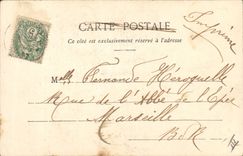 CARTE POSTALE
Ce côté est exclusivement réservé à l'adresse
Imprimé
5
Mlle Fernande Héroguelle
Rue de l'Abbé de l'Epée
Marseille
B.R